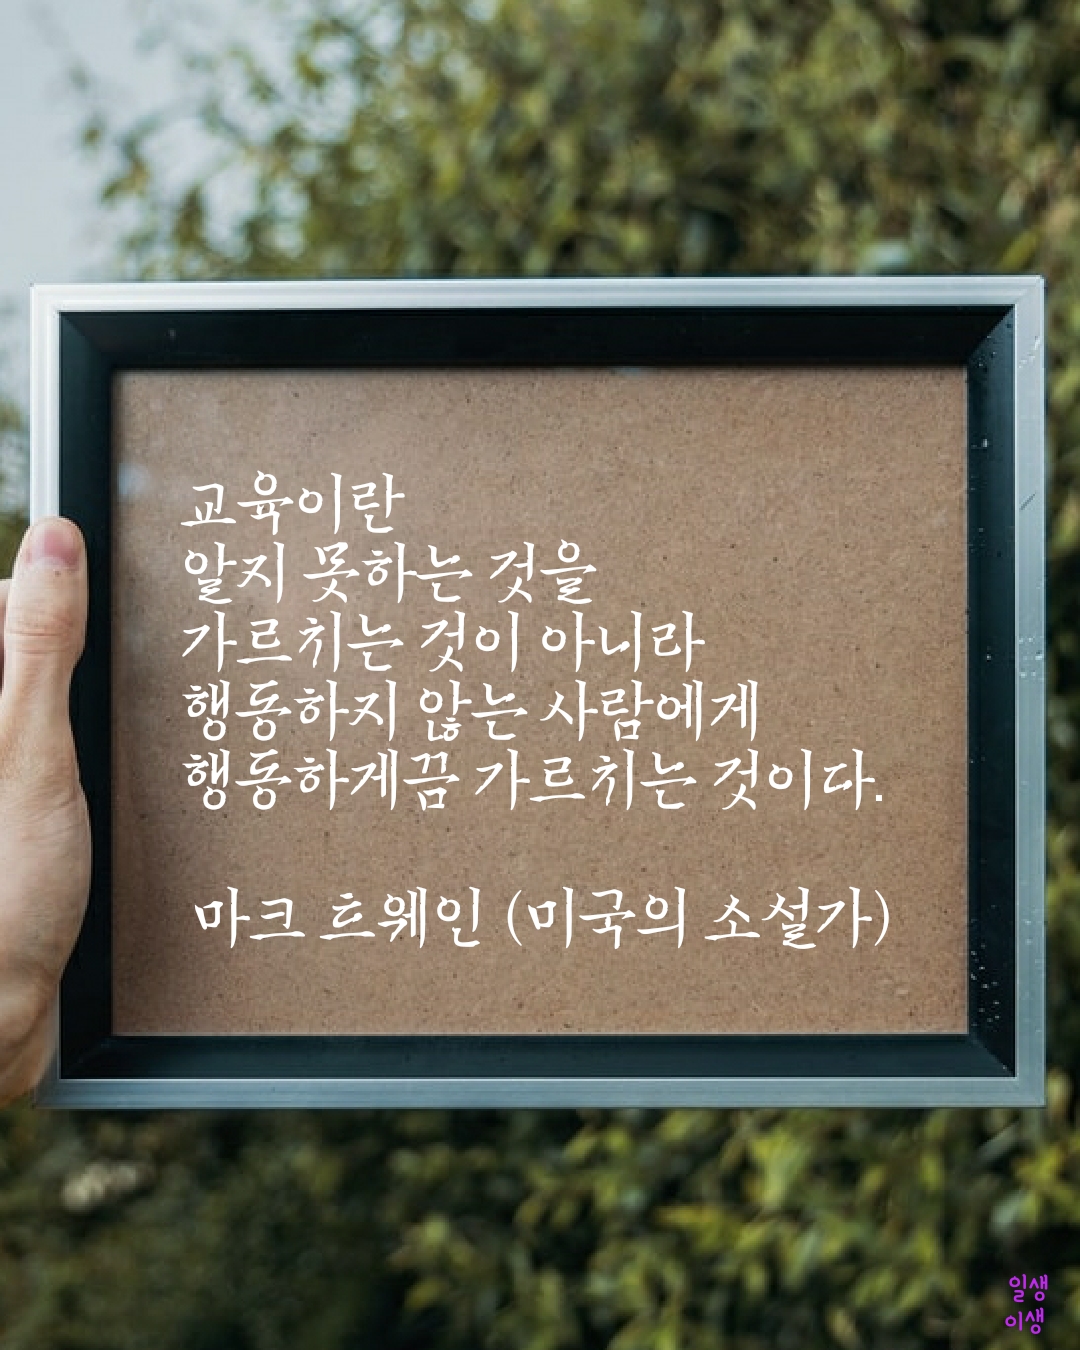 교육이란
알지 못하는 것을
가르치는 것이 아니라
행동하지 않는 사람에게
행동하게끔 가르치는 것이다.
마크 트웨인 (미국의 소설가)
일생
이생